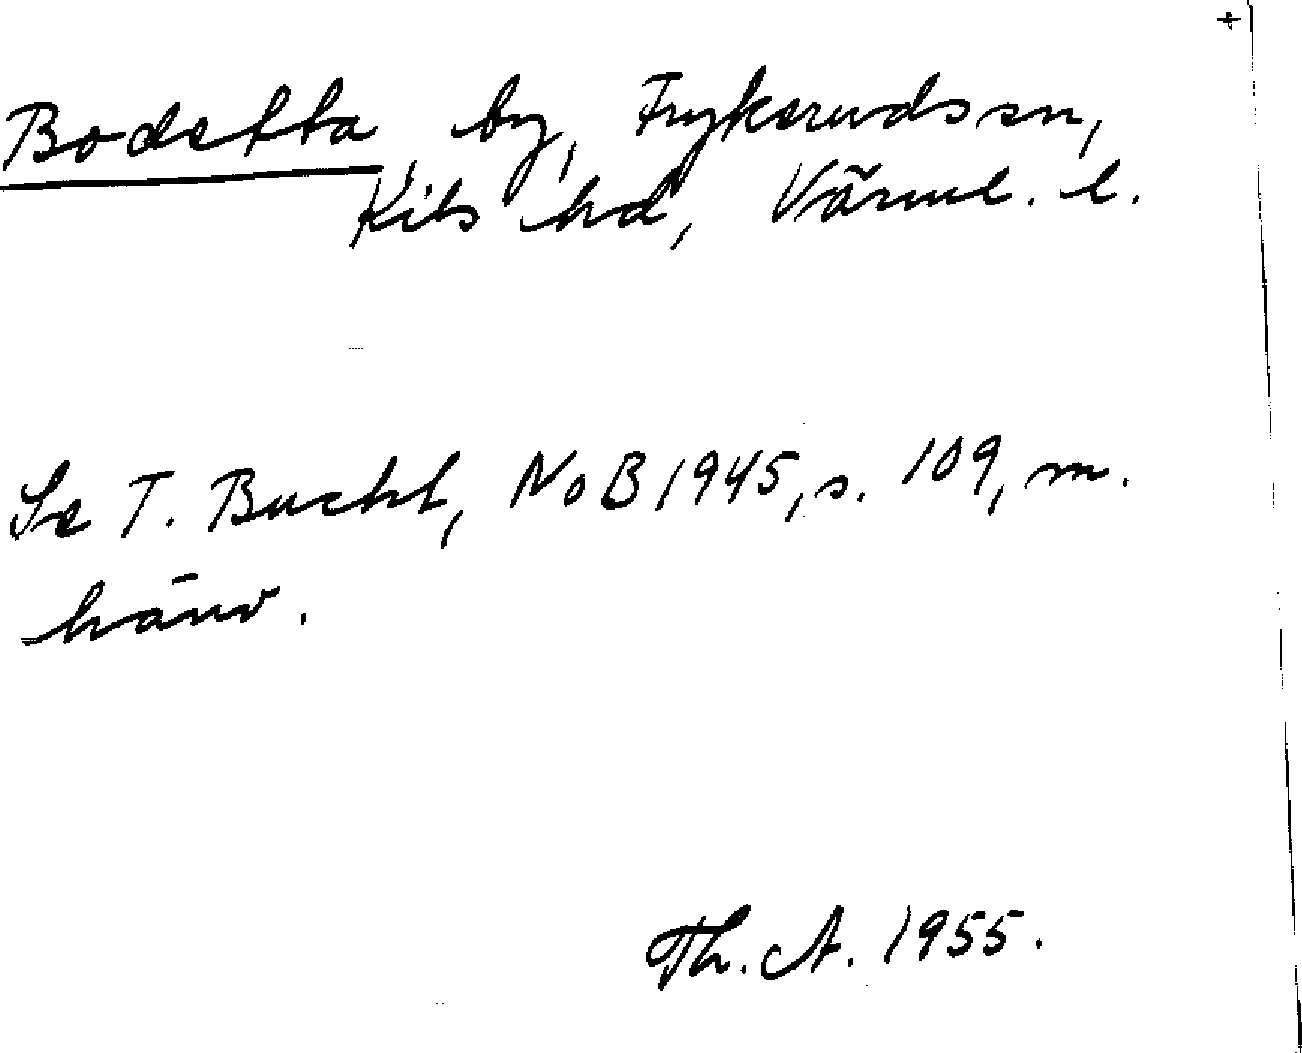 +
Bodetta, by, Frykeruds sn,
Kils hd, Värml. l.
Se T. Bucht, NoB 1945, s. 109, m.
hänv.
Th. A. 1955.